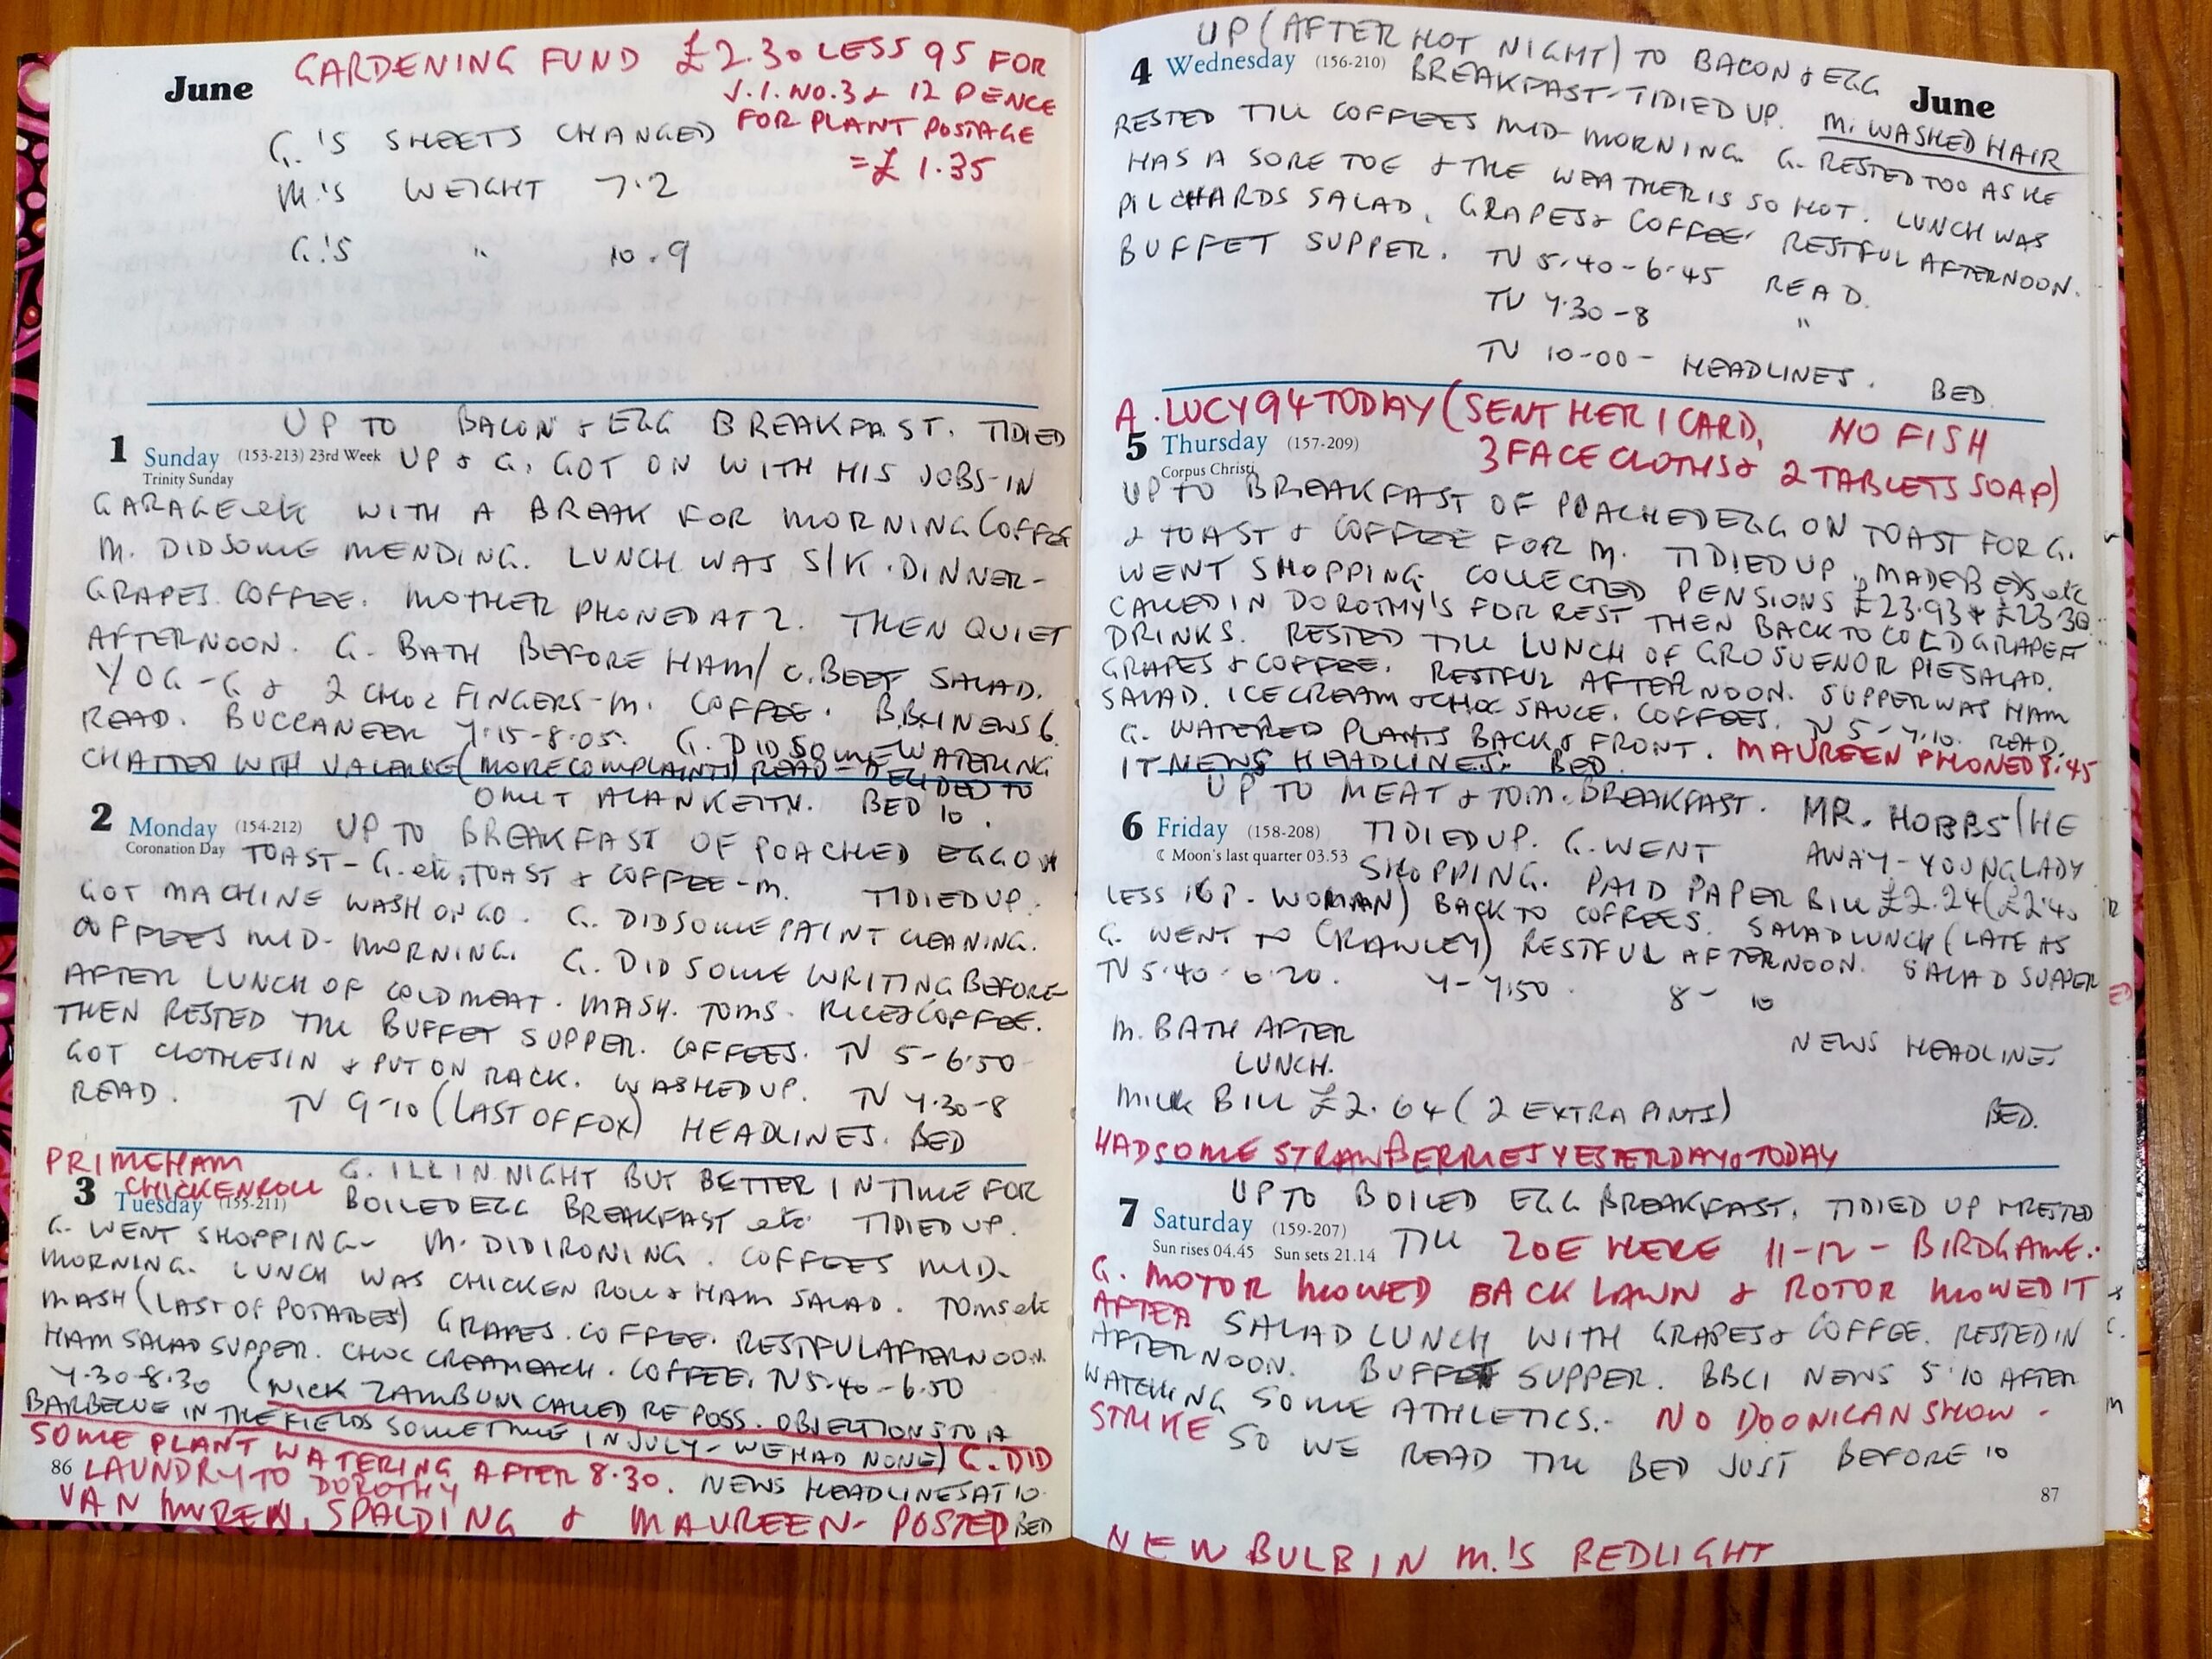 June
GARDENING FUND £2.30 LESS 95 FOR
J.I. NO.3 & 12 PENCE
FOR PLANT POSTAGE
= £1.35
G.'S SHEETS CHANGED
M.'S WEIGHT 7.2
G.'S " 10.9
UP TO BACON & EGG BREAKFAST. TIDIED
1 Sunday (153-213) 23rd Week UP & G. GOT ON WITH HIS JOBS-IN
Trinity Sunday
GARAGE etc WITH A BREAK FOR MORNING COFFEE
M. DID SOME MENDING. LUNCH WAS S/K. DINNER-
GRAPES. COFFEE. MOTHER PHONED AT 2. THEN QUIET
AFTERNOON. G. BATH BEFORE HAM/C.BEEF SALAD.
YOG-G & 2 CHOC FINGERS-M. COFFEE. B.BC1 NEWS 6.
READ. BUCCANEER 7.15-8.05. G. DID SOME WATERING
CHATTER WITH VALERIE (MORE COMPLAINTS) READ - DECIDED TO
OMIT ALAN KEITH. BED 10.
2 Monday (154-212) UP TO BREAKFAST OF POACHED EGG ON
Coronation Day TOAST-G. etc, TOAST & COFFEE-M. TIDIED UP.
GOT MACHINE WASH ON GO. G. DID SOME PAINT CLEANING.
COFFEES MID-MORNING. G. DID SOME WRITING BEFORE
AFTER LUNCH OF COLD MEAT. MASH. TOMS. RICE & COFFEE.
THEN RESTED TILL BUFFET SUPPER. COFFEES. TV 5-6.50
GOT CLOTHES IN & PUT ON RACK. WASHED UP. TV 7.30-8
READ. TV 9-10 (LAST OF FOX) HEADLINES. BED
PRIME HAM
CHICKEN ROLL
G. ILL IN NIGHT BUT BETTER IN TIME FOR
3 Tuesday (155-211) BOILED EGG BREAKFAST etc TIDIED UP.
G. WENT SHOPPING- M. DID IRONING. COFFEES MID-
MORNING. LUNCH WAS CHICKEN ROLL & HAM SALAD. TOMS etc
MASH (LAST OF POTATOES) GRAPES. COFFEE. RESTFUL AFTERNOON.
HAM SALAD SUPPER. CHOC CREAM EACH. COFFEE. TV 5.40-6.50
7.30-8.30 (NICK ZAMBUNI CALLED RE POSS. OBJECTIONS TO A
BARBECUE IN THE FIELDS SOMETIME IN JULY-WE HAD NONE) G. DID
SOME PLANT WATERING AFTER 8.30. NEWS HEADLINES AT 10.
86 LAUNDRY TO DOROTHY
VAN SPALDING & MAUREEN-POSTED BED
UP (AFTER HOT NIGHT) TO BACON & EGG
4 Wednesday (156-210) BREAKFAST-TIDIED UP. M. WASHED HAIR
June
RESTED TILL COFFEES MID-MORNING. G. RESTED TOO AS HE
HAS A SORE TOE & THE WEATHER IS SO HOT. LUNCH WAS
PILCHARDS SALAD, GRAPES & COFFEE. RESTFUL AFTERNOON.
BUFFET SUPPER. TV 5.40-6.45 READ.
TV 7.30-8 "
TV 10-00- HEADLINES. BED.
A. LUCY 94 TODAY (SENT HER 1 CARD, NO FISH
5 Thursday (157-209) 3 FACE CLOTHS & 2 TABLETS SOAP)
Corpus Christi
UP TO BREAKFAST OF POACHED EGG ON TOAST FOR G.
& TOAST & COFFEE FOR M. TIDIED UP. MADE BEDS etc
WENT SHOPPING. COLLECTED PENSIONS £23.93 & £23.30
CALLED IN DOROTHY'S FOR REST THEN BACK TO COLD GRAPEFT
DRINKS. RESTED TILL LUNCH OF GROSVENOR PIE SALAD.
GRAPES & COFFEE. RESTFUL AFTERNOON. SUPPER WAS HAM
SALAD. ICE CREAM & CHOC SAUCE. COFFEES. TV 5-7.10. READ.
G. WATERED PLANTS BACK & FRONT. MAUREEN PHONED 8.45
IT NEWS HEADLINES. BED.
UP TO MEAT & TOM. BREAKFAST. MR. HOBBS (HE
6 Friday (158-208) TIDIED UP. G. WENT AWAY-YOUNG LADY
☾ Moon's last quarter 03.53 SHOPPING. PAID PAPER BILL £2.24 (£2.40
LESS 16P. WOMAN) BACK TO COFFEES. SALAD LUNCH (LATE AS
G. WENT TO CRAWLEY) RESTFUL AFTERNOON. SALAD SUPPER
TV 5.40-6.20. 7-7.50. 8-10
M. BATH AFTER
LUNCH.
NEWS HEADLINES
MILK BILL £2.64 (2 EXTRA PINTS) BED.
HAD SOME STRAWBERRIES YESTERDAY & TODAY
UP TO BOILED EGG BREAKFAST. TIDIED UP & RESTED
7 Saturday (159-207) TILL ZOE HERE 11-12 - BIRDGAME.
Sun rises 04.45 Sun sets 21.14
G. MOTOR MOWED BACK LAWN & ROTOR MOWED IT
AFTER SALAD LUNCH WITH GRAPES & COFFEE. RESTED IN
AFTERNOON. BUFFET SUPPER. BBC1 NEWS 5.10 AFTER
WATCHING SOME ATHLETICS. NO DOONICAN SHOW-
STRIKE SO WE READ TILL BED JUST BEFORE 10
87
NEW BULB IN M.'S BEDLIGHT